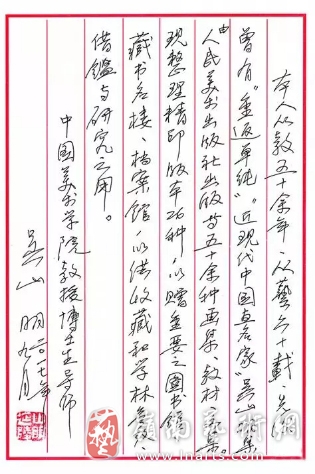 本人从教五十余年、从艺六十载、先
曾有“重返单纯”近现代中国画名家“吴山明集
由人民美术出版社出版等五十余种画集、教材、集。
现整理精印版本26种，以赠重要之图书馆、
藏书名楼、档案馆，以供收藏和学林
借鉴与研究之用。
中国美术学院教授博士生导师
吴山明 二〇一七年九月
岭南艺术网
www.lnarts.com